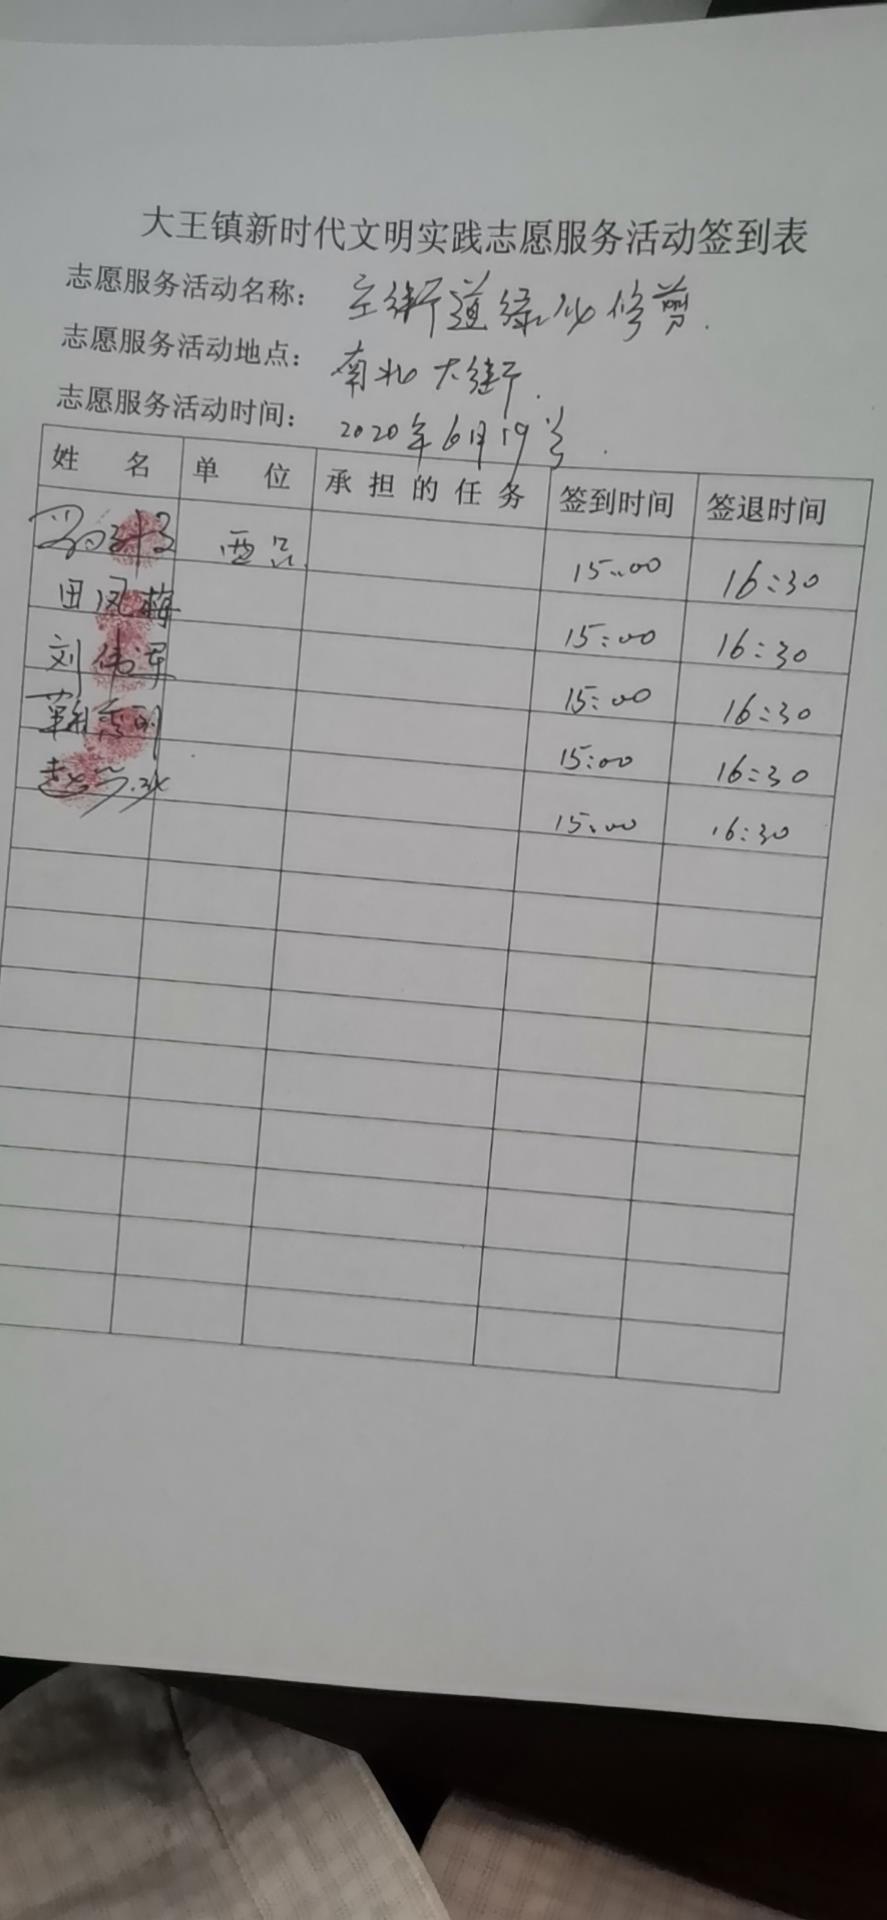 大王镇新时代文明实践志愿服务活动签到表
志愿服务活动名称： 主街道绿化修剪.
志愿服务活动地点： 南北大街.
志愿服务活动时间： 2020年6月19号.
姓 名 单 位 承担的任务 签到时间 签退时间
西吕 15:00 16:30
田凤梅 15:00 16:30
刘伟军 15:00 16:30
15:00 16:30
15:00 16:30